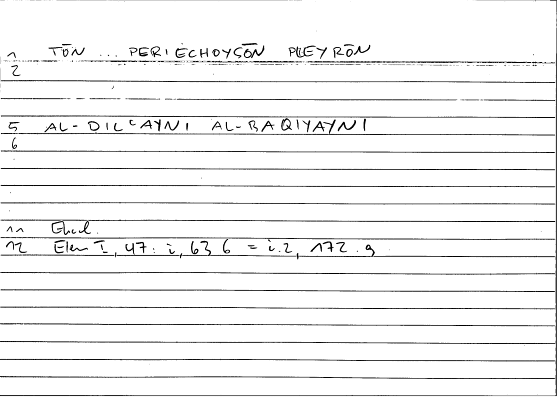 1 TŌN ... PERIECHOYSŌN PLEYRŌN
2
5 AL-DILcAYNI AL-BAQIYAYNI
6
11 Eucl.
12 Elem I, 47: i, 63 6 = i.2, 172.9